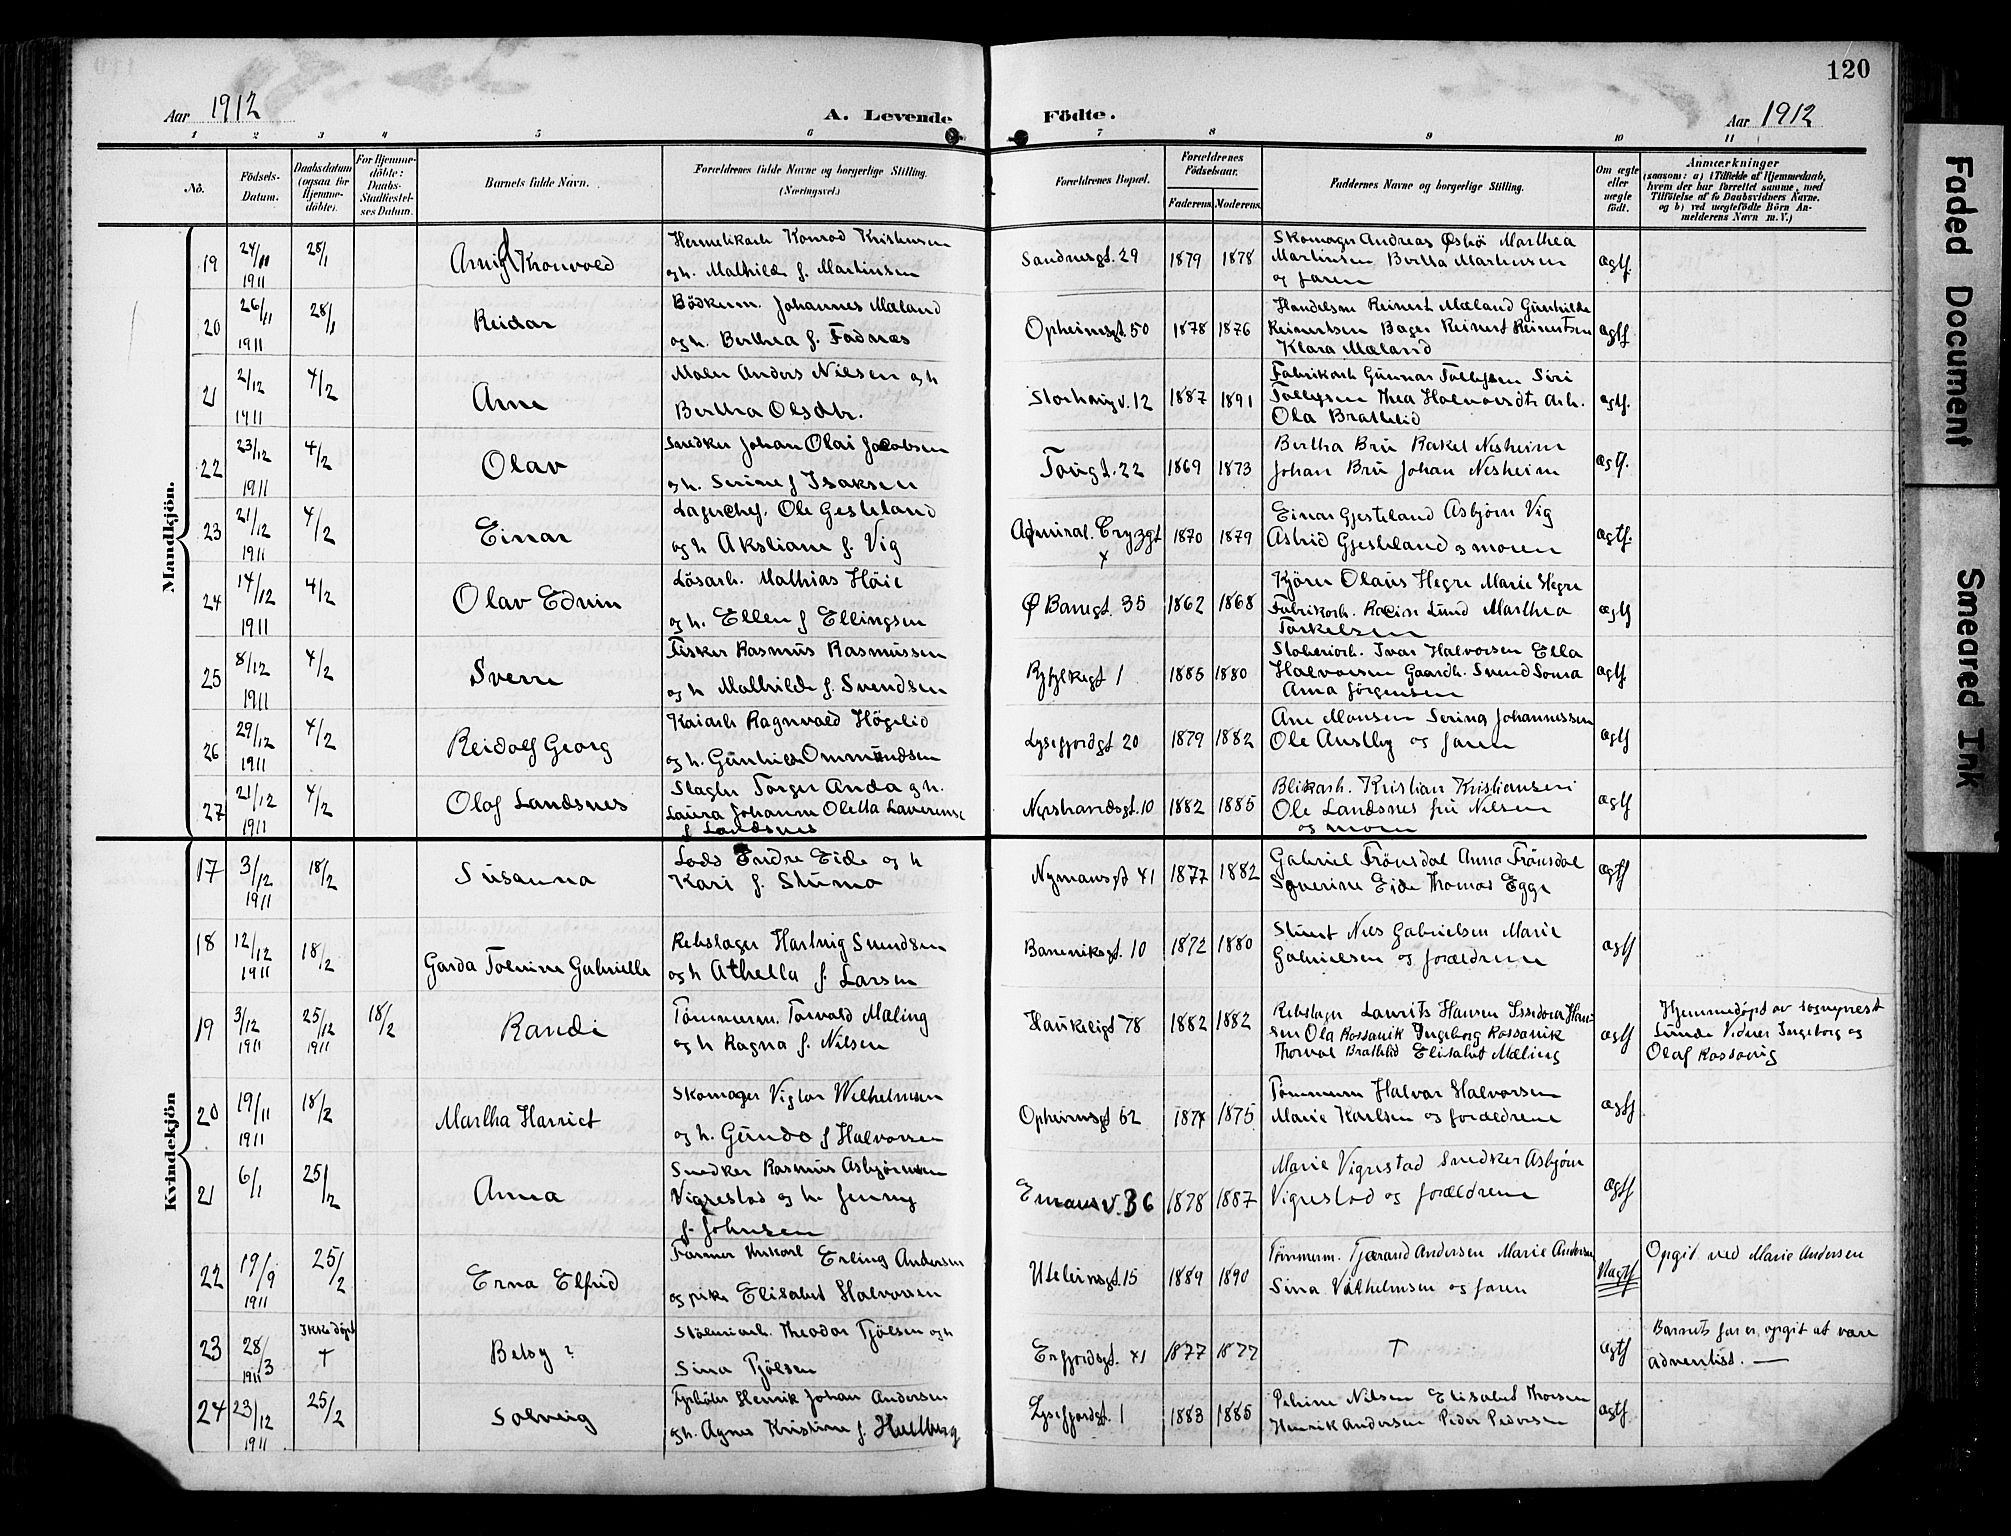 120
Aar 1912
A. Levende
Födte.
Aar 1912
1 2 3 4 5 6 7 8 9 10 11
No.
Födsels-Datum.
Daabsdatum (ogsaa for Hjemmedöbte).
For Hjemmedöbte: Daabs-Stadfæstelses Datum.
Barnets fulde Navn.
Forældrenes fulde Navne og borgerlige Stilling.
(Næringsvei.)
Forældrenes Bopæl.
Forældrenes Födselsaar.
Faderens. Moderens.
Faddernes Navne og borgerlige Stilling.
Om ægte eller uægte födt.
Anmærkninger
(saasom: a) i Tilfælde af Hjemmedaab,
hvem der har forrettet samme, med
Tilföielse af to Daabsvidners Navne.
og b) ved uægtefödte Börn An-
melderens Navn m. V.)
Mandkjön.
19 24/11 1911 28/1 Konrad Kristensen
og h. Mathilde f. Martinsen
Sandnesgt. 29 1879 1878 Skomager Andreas Marthea
Martinsen Bertha Martinsen
og faren
ægtf.
20 26/11 1911 28/1 Reidar Bödkerm. Johannes Mæland
og h. Berthea f. Fadnæs
Opheimsgt. 50 1878 1876 Handelsm Reinert Mæland Gunhilde
Reinertsen Bager Reinert Reinertsen
Klara Mæland
ægtf.
21 2/12 1911 4/2 Arne Maler Anders Nilsen og h
Bertha Olsdtr.
Storhaugv. 12 1887 1891 Fabrikarb Gunnar Tollefsen Siri
Tollefsen Thea Arb.
Ola Bratlelid
ægtf.
22 23/12 1911 4/2 Olav Snedker Johan Olai Jacobsen
og h. Serine f Isaksen
Taugt. 22 1869 1873 Bertha Bru Rakel Nesheim
Johan Bru Johan Nesheim
ægtf.
23 21/12 1911 4/2 Einar Lagerchef. Ole Gjesteland
og h f. Vig
Admiral. Crüzgt x 1870 1879 Einar Gjesteland Asbjørn Vig
Astrid Gjesteland og moren
ægtf.
24 14/12 1911 4/2 Olav Edvin Lösarb. Mathias Höie
og h. Ellen f Ellingsen
Ø Banegt. 35 1862 1868 Kjörer Olaus Hegre Marie Hegre
Fabrikarb. Lund Marthea
Torkelsen
ægtf
25 8/12 1911 4/2 Sverre Fisker Rasmus Rasmussen
og h Mathilde f. Svendsen
Ryfylkegt 1 1885 1880 Støberiarb. Ivar Halvorsen Ella
Halvorsen Gaardb. Svend Soma
Anna Jörgensen
ægtf.
26 29/12 1911 4/2 Reidolf Georg Kaiarb Ragnvald Högelid
og h. Gunhilde Ommundsen
Lysefjordgt 20 1879 1882 Ane Monsen Serina Johannessen
Ole Austby og faren
ægtf
27 21/12 1911 4/2 Olaf Landsnes Slagter Torger Anda og h.
Laura Johanne Oletta Laverense
f Landsnes
Nystrandsgt. 10 1882 1885 Blikarb. Kristian Kristiansen
Ole Landsnes fru Nilsen
og moren
ægtf
Kvindekjön
17 3/12 1911 18/2 Susanna Lods Endre Eide og h
Kari f. Stumo
Nymansgt 41 1877 1882 Gabriel Trönsdal Anna Trönsdal
Severine Eide Thomas Egge
ægtf
18 12/12 1911 18/2 Garda Tolvine Gabrielle Rebslager Hartvig Svendsen
og h Athella f. Larsen
Banevikgt. 10 1872 1880 Stuert Nils Gabrielsen Marie
Gabrielsen og forældrene
ægtf
19 3/12 1911 25/12 1911 18/2 Randi Tömmerm. Torvald Mæling
og h Ragna f. Nilsen
Haukeligt 78 1882 1882 Rebslager Laurits Hansen Issidora Han-
sen Ola Rossavik Ingeborg Rossavik
Thorval Bratlelid Elisabet Mæling
ægtf
Hjemmedöpt av sogneprest
Lunde Vidner Ingeborg og
Olaf Rossavig
20 19/11 1911 18/2 Martha Harriet Skomager Vigtor Wilhelmsen
og h. Gunda f Halvorsen
Opheimsgt 62 1874 1875 Tömmerm Halvar Halvorsen
Marie Karlsen og forældrene
ægtf
21 6/1 25/2 Anna Snedker Rasmus Asbjörnsen
Vigrestad og h. Jenny
f. Johnsen
Emausv. 36 1878 1887 Marie Vigrestad Snedker Asbjörn
Vigrestad og forældrene
ægtf
22 19/9 1911 25/2 Erna Elfrid Former Unkarl Erling Andersen
og pike Elisabet Halvorsen
Utsteinsgt. 15 1889 1890 Tömmerm. Tjærand Andersen Marie Andersen
Sina Vilhelmsen og faren
Uægtf
Opgit ved Marie Andersen
23 28/3 1911 Ikke döpt † Betsy ? Stöberiarb. Theodor Tjölsen og h
Sina Tjölsen
Erfjordsgt. 41 1877 1877 † ægtf
Barnets far er opgit at være
adventist. —
24 23/12 1911 25/2 Solveig Fyrböter Henrik Johan Andersen
og h. Agnes Kristine f. Hultberg
Lysefjordgt. 1 1883 1885 Petrine Nilsen Elisabet Thorsen
Henrik Andersen Peder Pedersen
ægtf
Faded Document
Smeared Ink